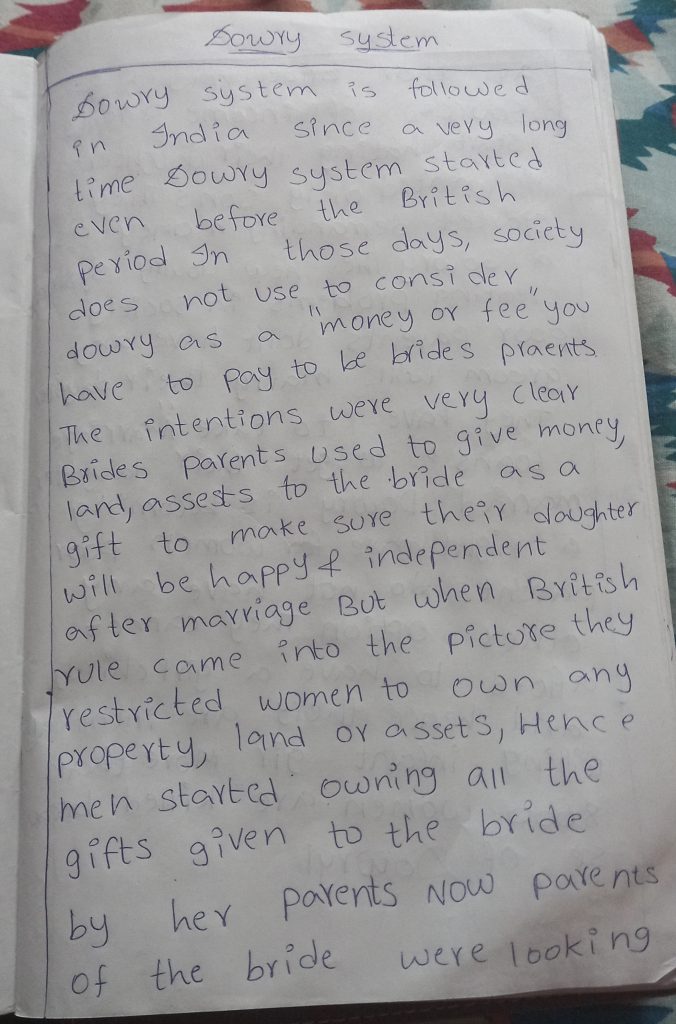 Dowry system
Dowry system is followed
in India since a very long
time Dowry system started
even before the British
period In those days, society
does not use to consider
dowry as a "money or fee" you
have to pay to be brides praents
The intentions were very clear
Brides parents used to give money,
land, assests to the bride as a
gift to make sure their daughter
will be happy & independent
after marriage But when British
rule came into the picture they
restricted women to own any
property, land or assets, Hence
men started owning all the
gifts given to the bride
by her parents Now parents
of the bride were looking